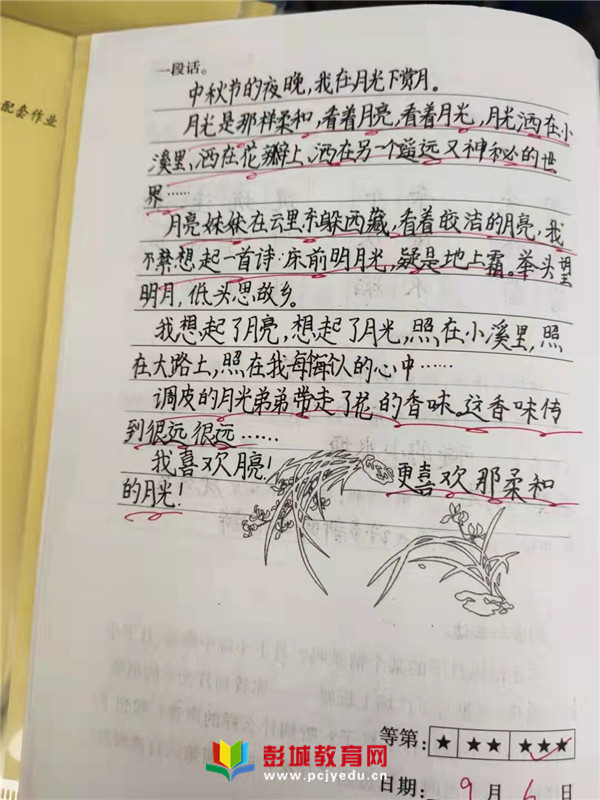 配套作业
一段话。
中秋节的夜晚,我在月光下赏月。
月光是那样柔和,看着月亮,看着月光,月光洒在小
溪里,洒在花瓣上,洒在另一个遥远又神秘的世
界……
月亮妹妹在云里东躲西藏,看着皎洁的月亮,我
不禁想起一首诗:床前明月光,疑是地上霜。举头望
明月,低头思故乡。
我想起了月亮,想起了月光,照在小溪里,照
在大路上,照在我每个人的心中……
调皮的月光弟弟带走了花的香味。这香味传
到很远很远……
我喜欢月亮!更喜欢那柔和
的月光!
等第:★ ★★ ★★★
彭城教育网
www.pcjyedu.cn
日期:9月6日